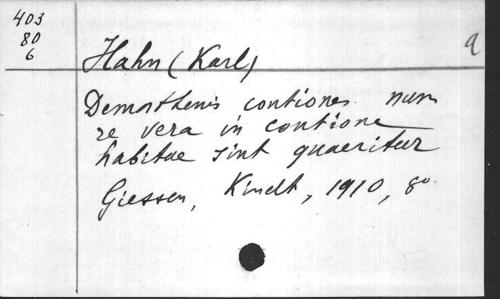 403
80
6
Hahn (Karl)
9
Demosthenis contiones num
re vera in contione
habitae sint quaeritur
Giessen, Kindt, 1910, 8o